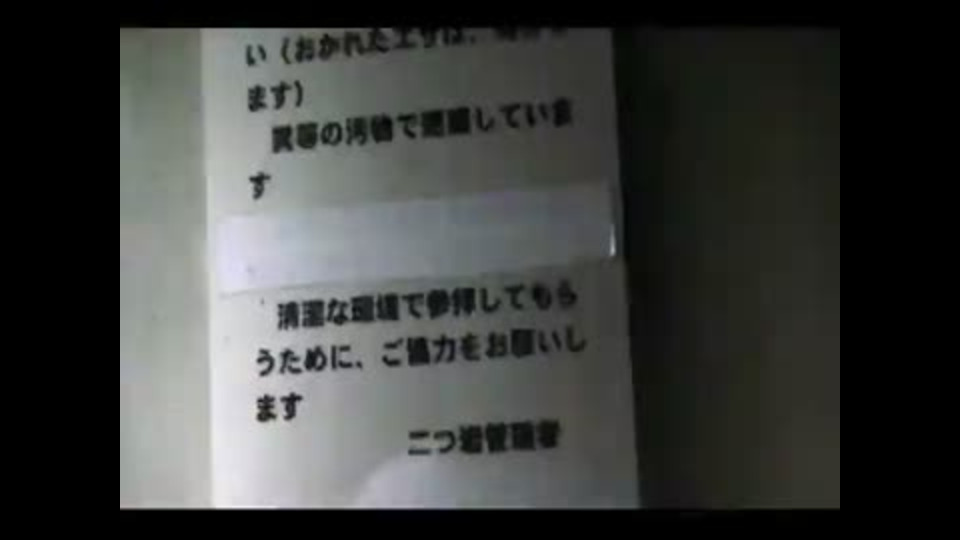 い（おかれたエサは、
ます）
糞等の汚物で迷惑していま
す
清潔な環境で参拝してもら
うために、ご協力をお願いし
ます
二つ岩管理者